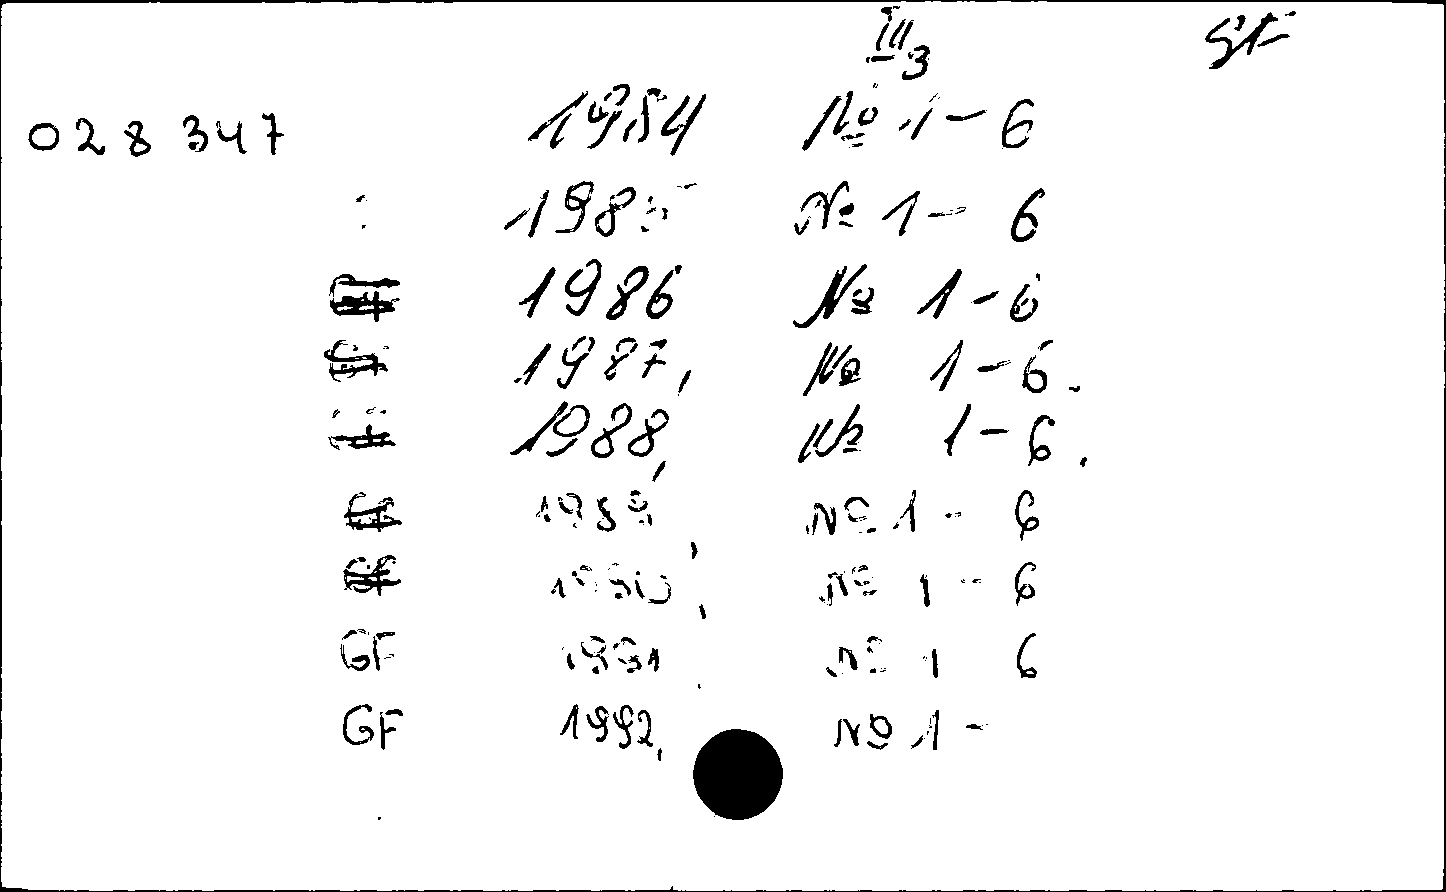 III3
028 347 1984 № 1-6
1985 № 1-6
1986 № 1-6
1987, № 1-6.
1988, № 1-6.
GF 1989, № 1-6
GF 1990, № 1-6
GF 1991 № 1 6
GF 1992, № 1-